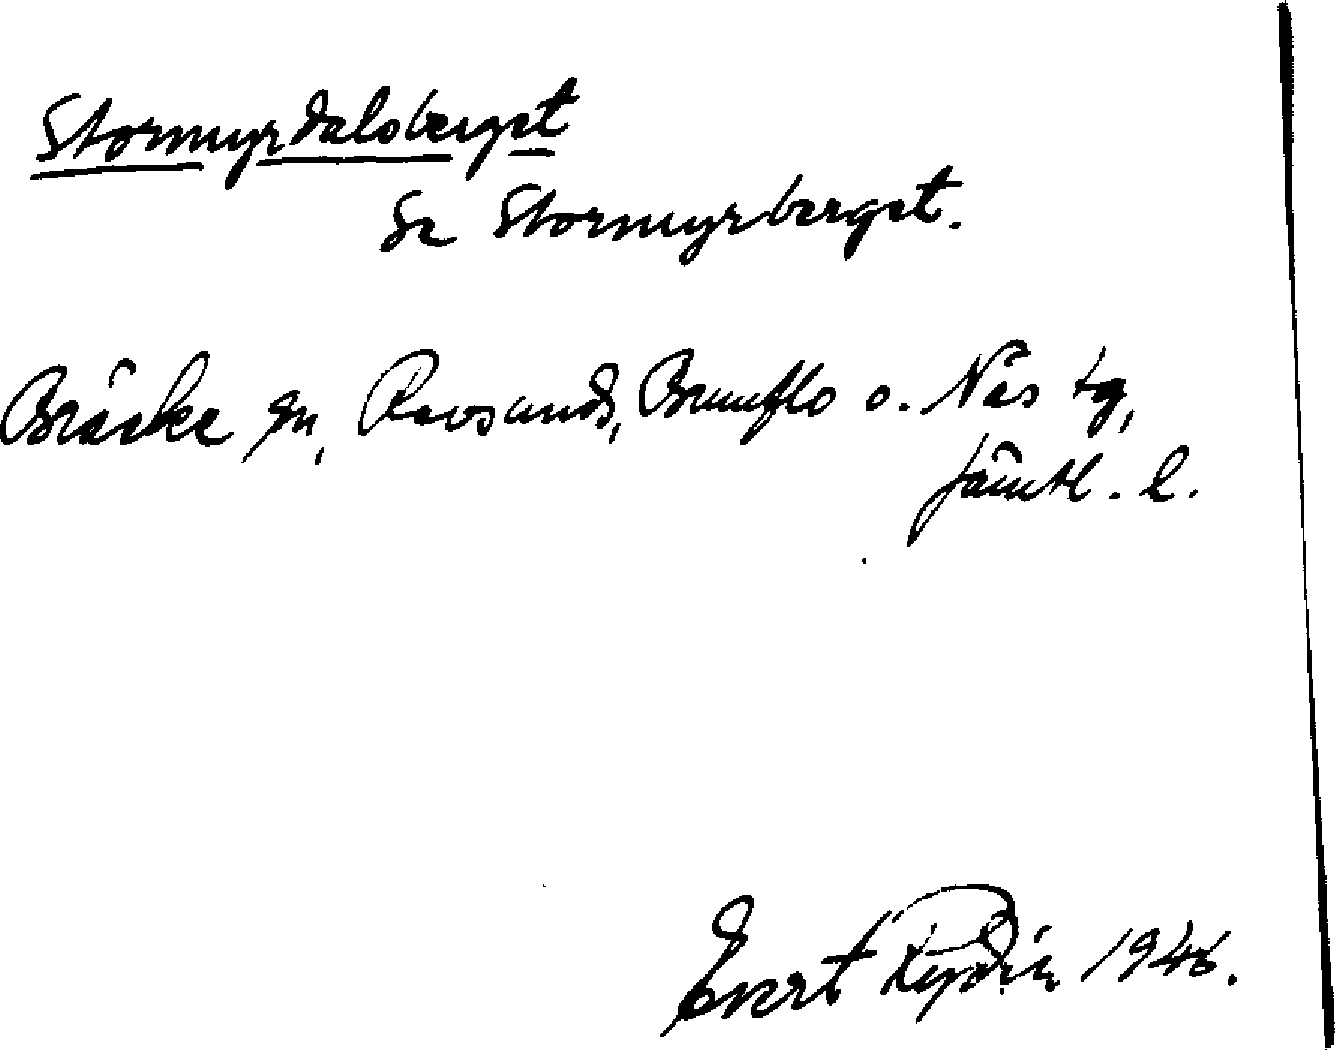 Stormyrdalsberget
Se Stormyrberget.
Bräcke sn, Revsunds, Brunflo o. Näs tg,
Jämtl. l.
Evert Rydin 1946.